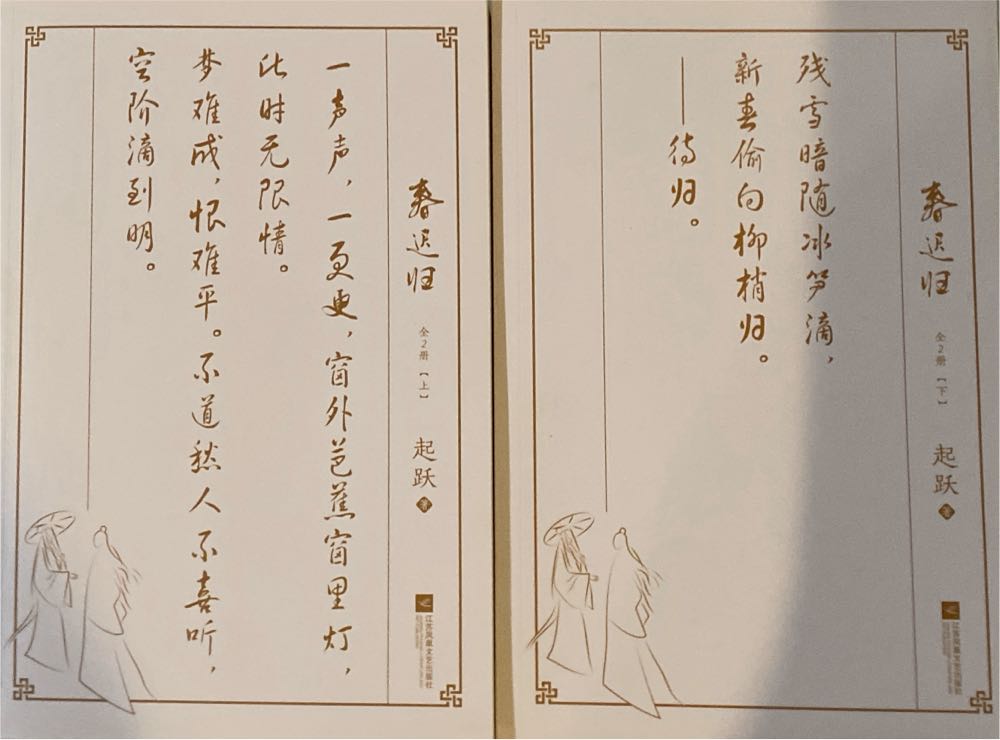 春迟归 全2册【上】 起跃 著
江苏凤凰文艺出版社
一声声，一更更，窗外芭蕉窗里灯，
此时无限情。
梦难成，恨难平。不道愁人不喜听，
空阶滴到明。
春迟归 全2册【下】 起跃 著
江苏凤凰文艺出版社
残雪暗随冰笋滴，
新春偷向柳梢归。
——待归。